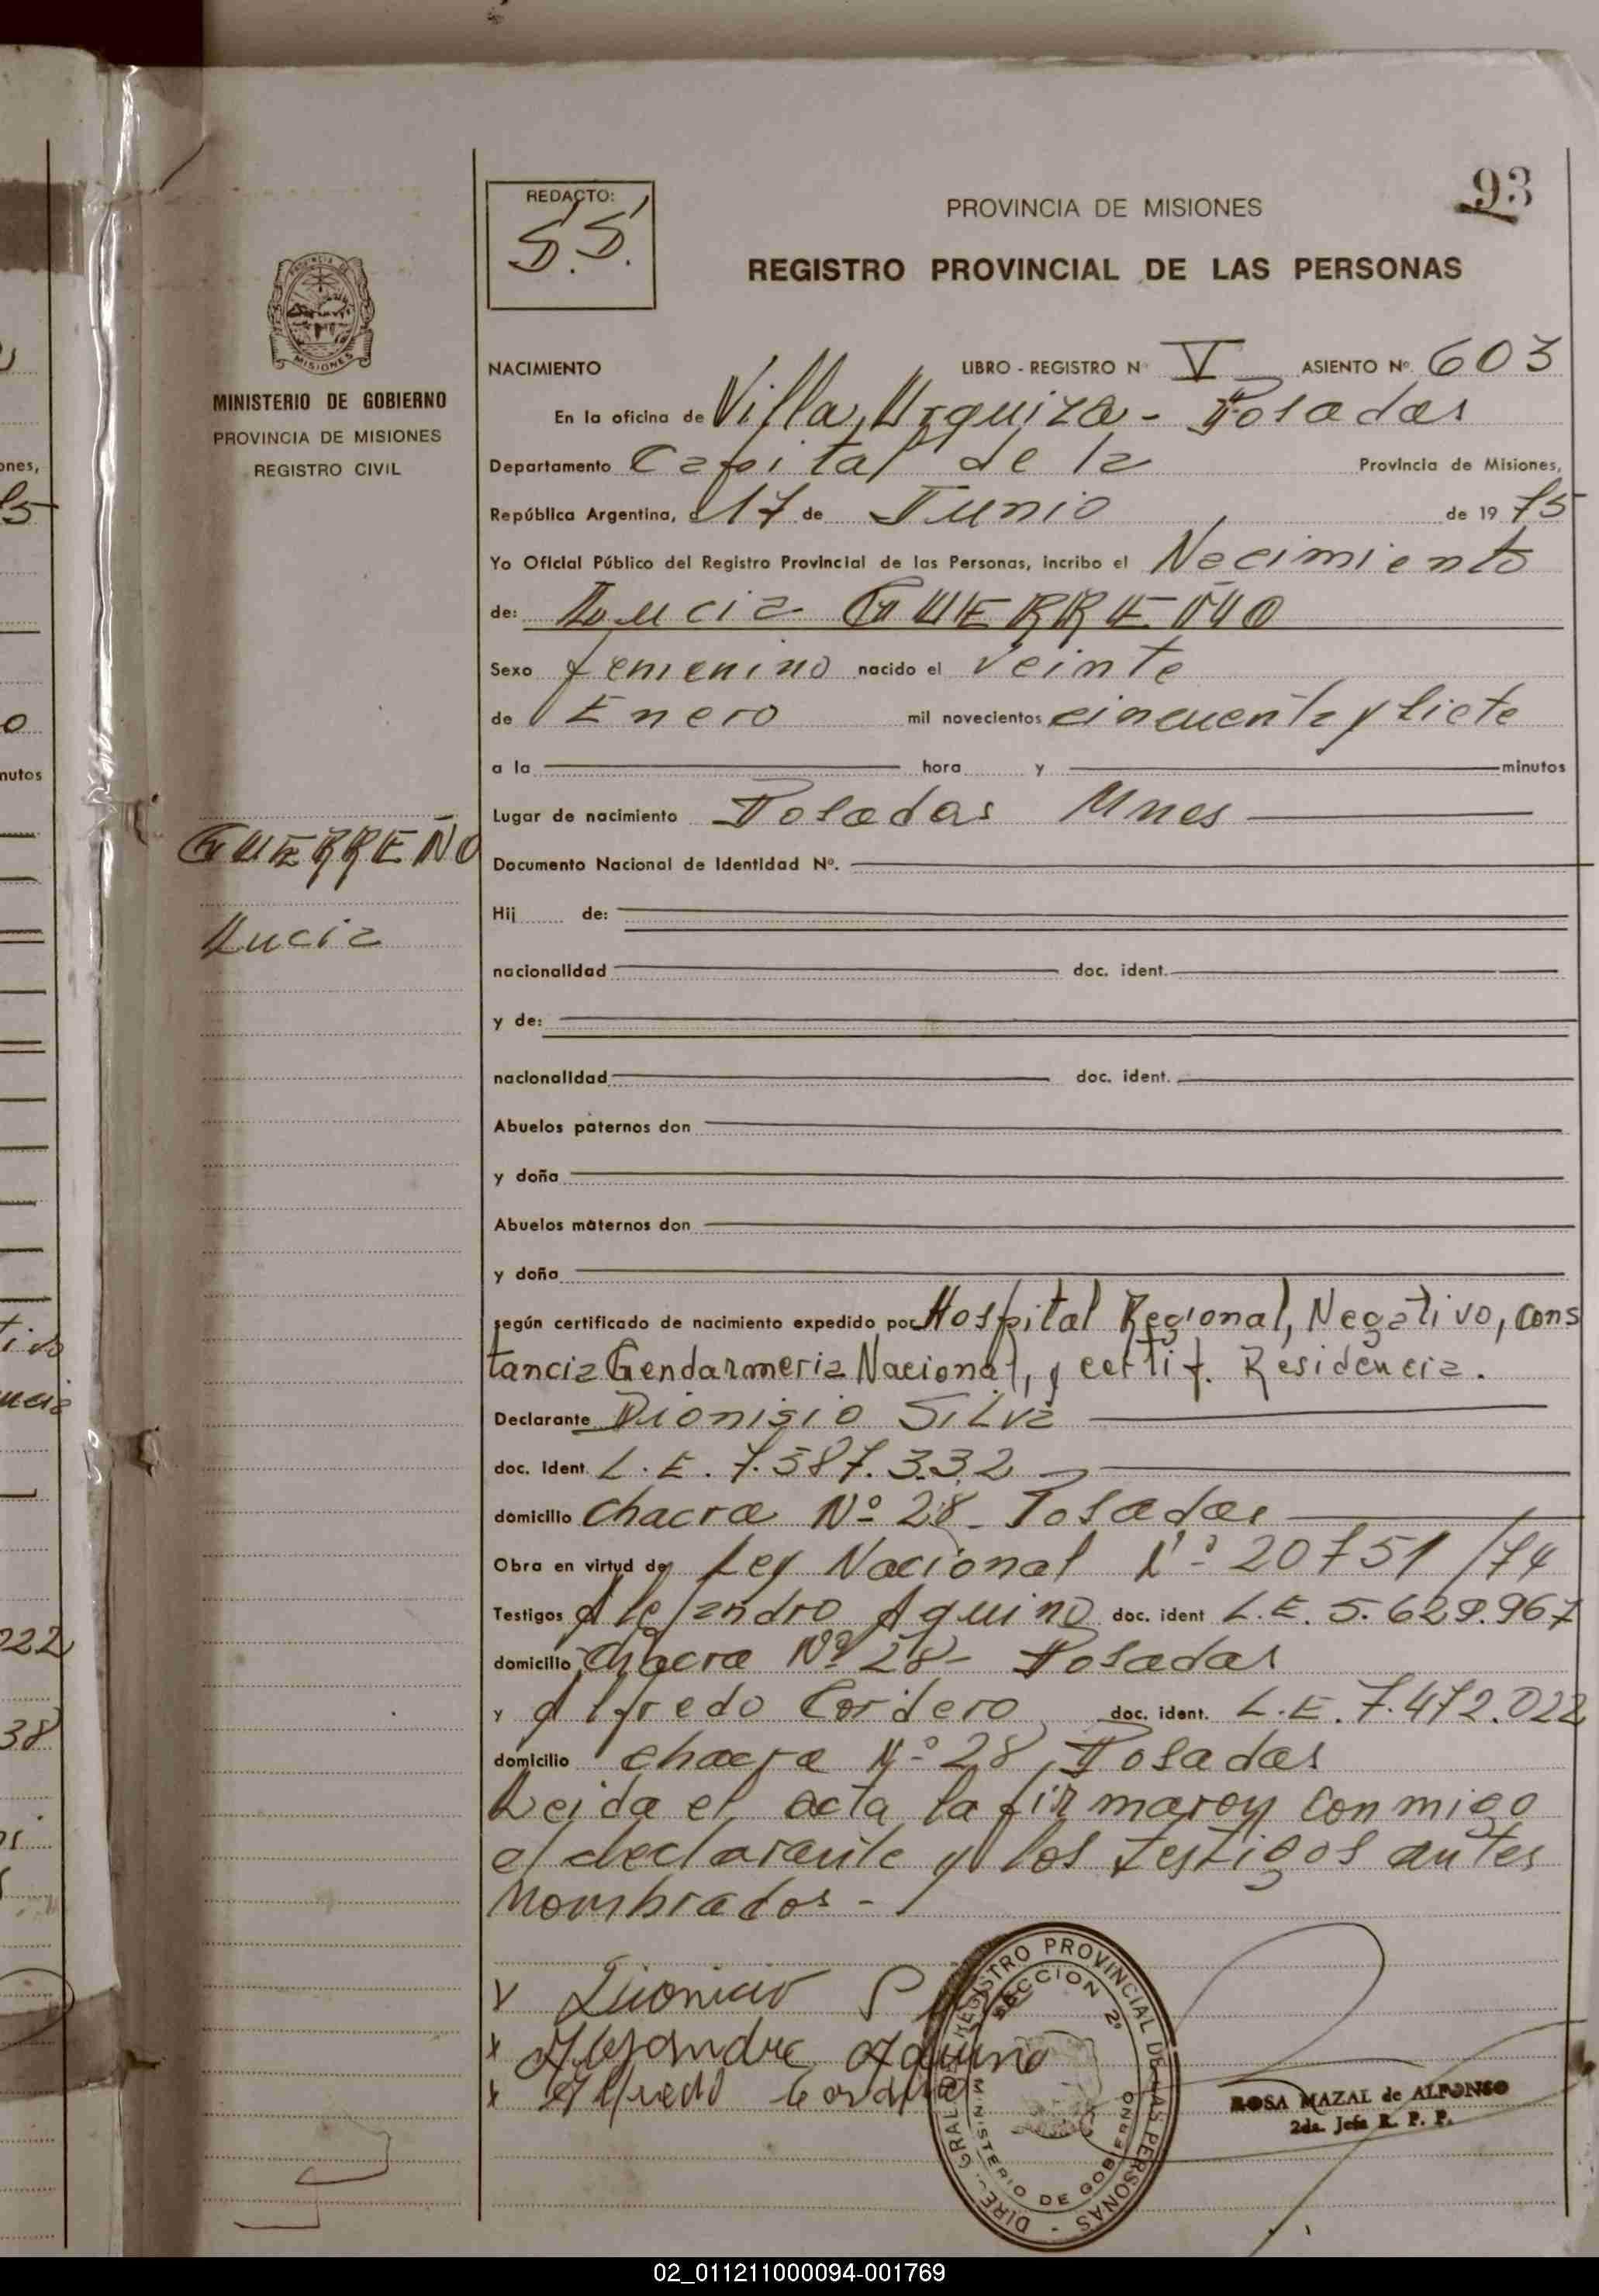 93
REDACTO:
S.S.
PROVINCIA DE MISIONES
REGISTRO PROVINCIAL DE LAS PERSONAS
PROVINCIA DE
MISIONES
MINISTERIO DE GOBIERNO
PROVINCIA DE MISIONES
REGISTRO CIVIL
GUERREÑO
Lucia
NACIMIENTO LIBRO - REGISTRO Nº V ASIENTO Nº. 603
En la oficina de Villa Urquiza - Posadas
Departamento Capital de la Provincia de Misiones,
República Argentina, a 17 de Junio de 19 75
Yo Oficial Público del Registro Provincial de las Personas, incribo el Nacimiento
de: Lucia GUERREÑO
Sexo femenino nacido el veinte
de Enero mil novecientos cincuenta y siete
a la hora y minutos
Lugar de nacimiento Posadas Mnes
Documento Nacional de Identidad Nº.
Hij de:
nacionalidad doc. ident.
y de:
nacionalidad doc. ident.
Abuelos paternos don
y doña
Abuelos maternos don
y doña
según certificado de nacimiento expedido por Hospital Regional, Negativo, cons
tancia Gendarmeria Nacional, y certif. Residencia.
Declarante Dionisio Silva
doc. Ident. L.E. 7.587.332
domicilio chacra Nº 28 - Posadas
Obra en virtud de Ley Nacional Nº 20751/74
Testigos Alejandro Aquino doc. ident L.E. 5.629.967
domicilio chacra Nº 28 - Posadas
y Alfredo Cordero doc. ident. L.E. 7.472.022
domicilio chacra Nº 28, Posadas
Leida el acta la firmaron conmigo
el declarante y los testigos antes
nombrados -
x Dionicio
x Alejandro Aquino
x Alfredo Cordero
DIRE. GRAL. DEL REGISTRO PROVINCIAL DE LAS PERSONAS -
SECCION 2º
MINISTERIO DE GOBIERNO
ROSA MAZAL de ALFONSO
2da. Jefa R. P. P.
ones,
75
nutos
022
38
02_011211000094-001769